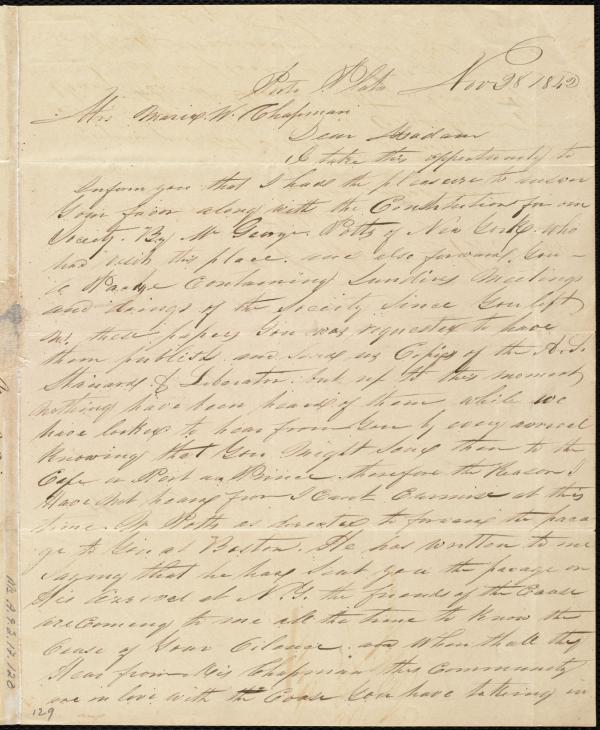 Porto Plata Nov 28 1842
Mrs Maria W. Chapman
Dear Madam
I take this opportunity to
Inform you that I have the pleasure to
Your favor along with the Constitution for our
Society. By Mr George Potts of New York. who
had visit this place. we also forward You
a Package Containing Sundries Meetings
and doings of the Society Since You left
us. these papers You was requested to have
them publish. and send us Copies of the A.S.
Standard & Liberator. but up to this moment
nothing have been heard of them while we
have looked to hear from You by every arrival
Knowing that You Might Send them to the
Cape or Port au Prince. therefore the Reason I
Have Not heard from I Can't at this
time. Mr Potts as directed to forward the packa
ge to You at Boston. He has written to me
Saying that he have Sent you the package on
His Arrival at N.Y. the friends of the Cause
are Coming to me all the time to Know the
Cause of Your Cilance. and When shall they
Hear from Mis Chapman this Community
are in love with the Cause You have taking in
129
Ms. A.9.2.17.120